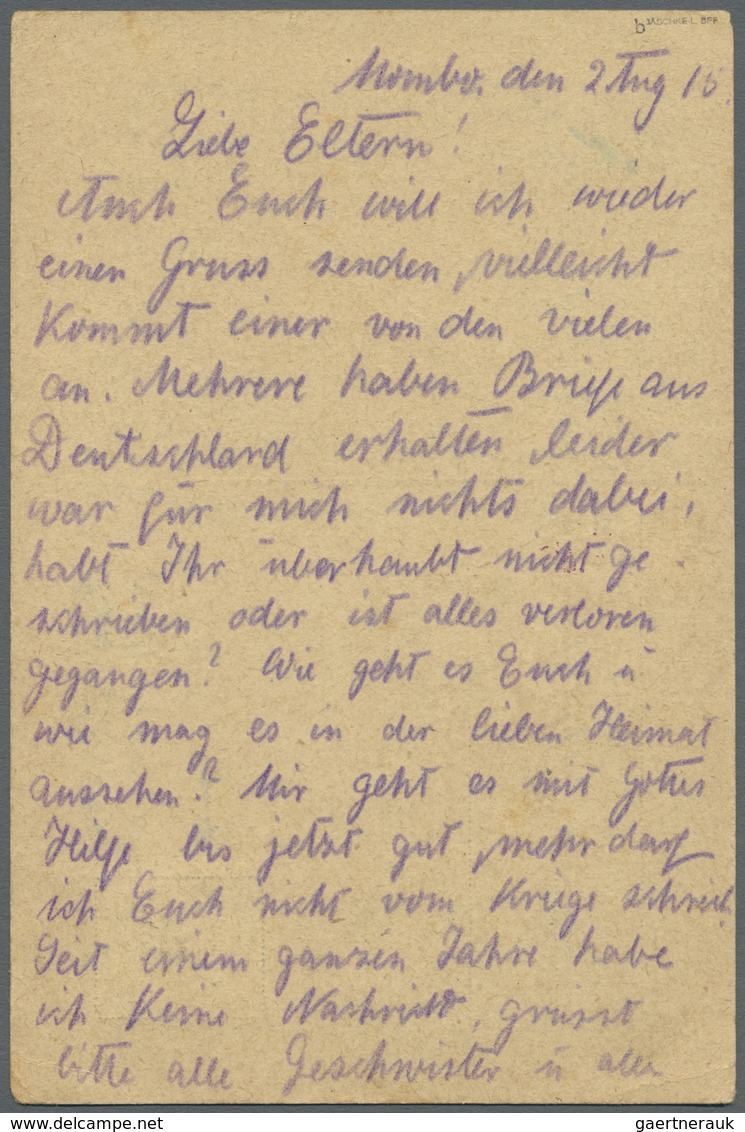 b JÄSCHKE-L. BPP
Mombo. den 2 Aug 15.
Liebe Eltern!
Auch Euch will ich wieder
einen Gruss senden, vielleicht
kommt einer von den vielen
an. Mehrere haben Briefe aus
Deutschland erhalten, leider
war für mich nichts dabei,
habt Ihr überhaubt nicht ge
schrieben oder ist alles verloren
gegangen? Wie geht es Euch u
wie mag es in der lieben Heimat
aussehen? Mir geht es mit Gottes
Hilfe bis jetzt gut, mehr darf
ich Euch nicht vom Kriege schreib.
Seit einem ganzen Jahre habe
ich keine Nachricht, grüsst
bitte alle Geschwister u alle
gaertnerauk